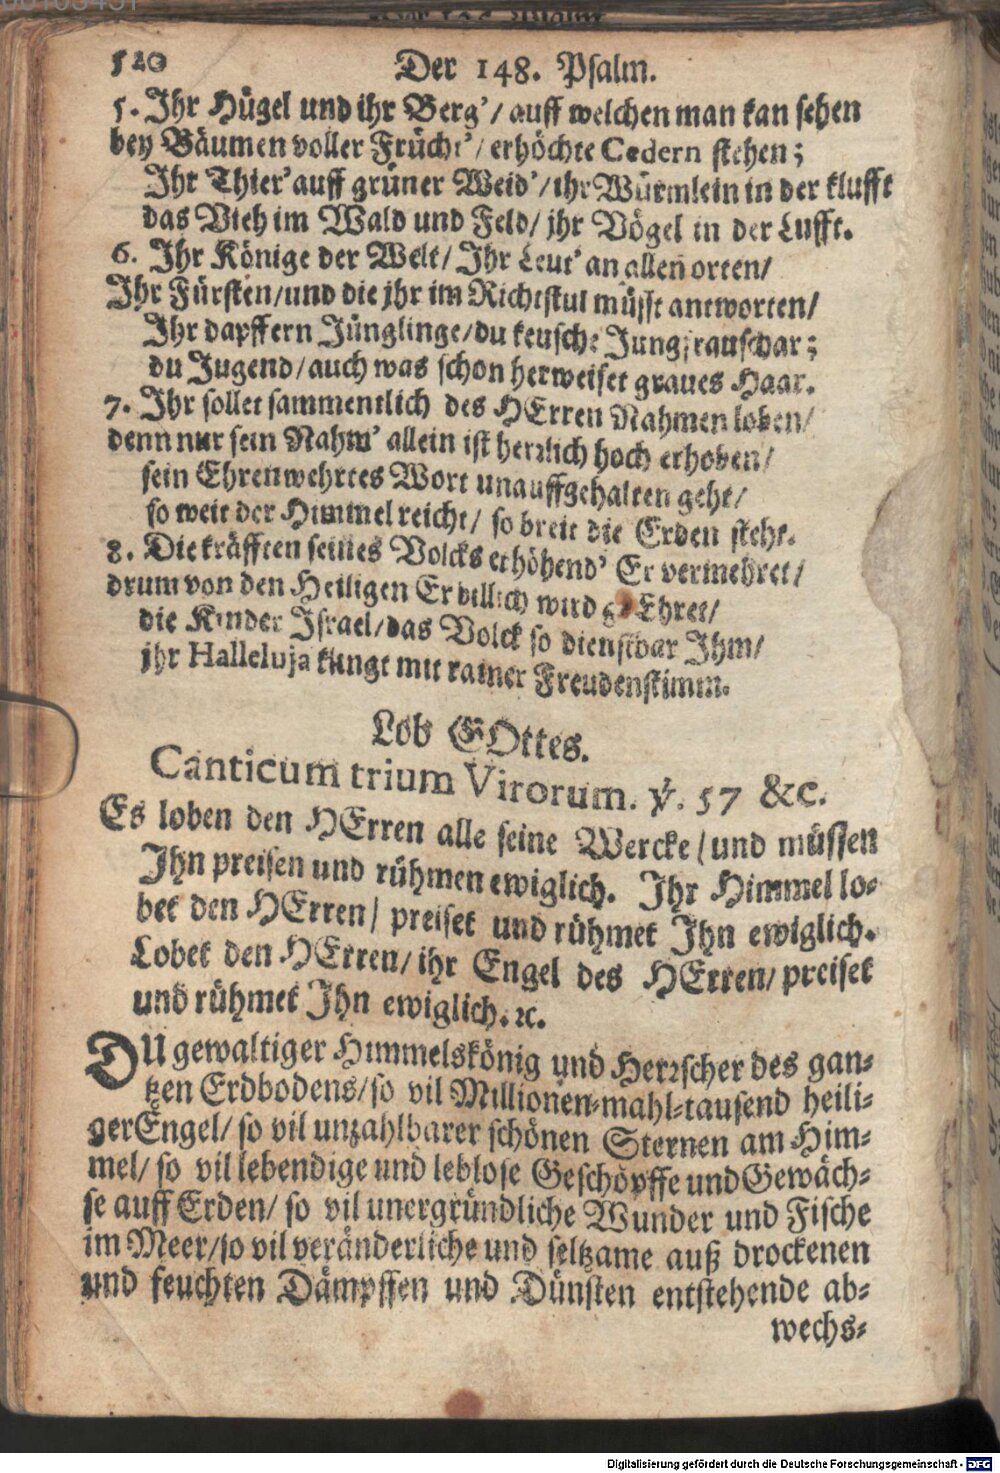 520 Der 148. Psalm.
5. Ihr Hügel und ihr Berg’/ auff welchen man kan sehen
bey Bäumen voller Frücht’/ erhöchte Cedern stehen;
Ihr Thier’ auff grüner Weid’/ ihr Würmlein in der klufft
das Vieh im Wald und Feld/ jhr Vögel in der Lufft.
6. Ihr Könige der Welt/ Ihr Leut’ an allen orten/
Ihr Fürsten/ und die jhr im Richtstul müsst antworten/
Ihr dapffern Jünglinge/ du keusche Jungfrauschar;
du Jugend/ auch was schon herweiset graues Haar.
7. Ihr sollet sammentlich des HErren Nahmen loben/
denn nur sein Nahm’ allein ist herrlich hoch erhoben/
sein Ehrenwehrtes Wort unauffgehalten geht/
so weit der Himmel reicht/ so breit die Erden steht.
8. Die kräfften seines Volcks erhöhend’ Er vermehret/
drum von den Heiligen Er billich wird geEhret/
die Kinder Israel/ das Volck so dienstbar Ihm/
jhr Halleluja klingt mit rainer Freudenstimm.
Lob GOttes.
Canticum trium Virorum. ℣. 57 &c.
Es loben den HErren alle seine Wercke/ und müssen
Ihn preisen und rühmen ewiglich. Ihr Himmel lo-
bet den HErren/ preiset und rühmet Ihn ewiglich.
Lobet den HErren/ ihr Engel des HErren/ preiset
und rühmet Ihn ewiglich. ꝛc.
DU gewaltiger Himmelskönig und Herrscher des gan-
tzen Erdbodens/ so vil Millionen-mahl-tausend heili-
ger Engel/ so vil unzahlbarer schönen Sternen am Him-
mel/ so vil lebendige und leblose Geschöpffe und Gewäch-
se auff Erden/ so vil unergründliche Wunder und Fische
im Meer/ so vil veränderliche und seltzame auß drockenen
und feuchten Dämpffen und Dünsten entstehende ab-
wechs-
Digitalisierung gefördert durch die Deutsche Forschungsgemeinschaft - DFG